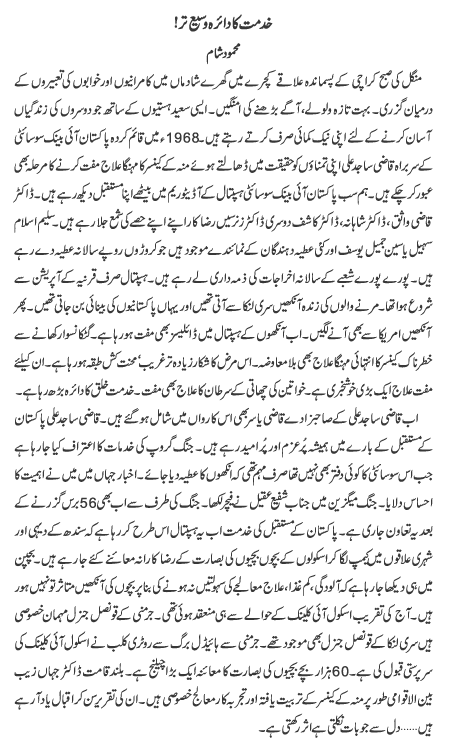 خدمت کا دائرہ وسیع تر!
محمود شام
منگل کی صبح کراچی کے پسماندہ علاقے گجرے میں گھرے شادماں میں کامرانیوں اور خوابوں کی تعبیروں کے
درمیان گزری۔ بہت تازہ ولولے، آگے بڑھنے کی امنگیں۔ ایسی سعید ہستیوں کے ساتھ جو دوسروں کی زندگیاں
آسان کرنے کے لئے اپنی نیک کمائی صرف کرتے رہتے ہیں۔ 1968ء میں قائم کردہ پاکستان آئی بینک سوسائٹی
کے سربراہ قاضی ساجد علی اپنی تمناؤں کو حقیقت میں ڈھالتے ہوئے منہ کے کینسر کا مہنگا علاج مفت کرنے کا مرحلہ بھی
عبور کر چکے ہیں۔ ہم سب پاکستان آئی بینک سوسائٹی ہسپتال کے آڈیٹوریم میں بیٹھے اپنا مستقبل دیکھ رہے ہیں۔ ڈاکٹر
قاضی واثق، ڈاکٹر شاہانہ، ڈاکٹر کاشف دوسری ڈاکٹرز نرسیں رضا کار اپنے اپنے حصے کی شمع جلا رہے ہیں۔ سلیم اسلام
سہیل یاسین جمیل یوسف اور کئی عطیہ دہندگان کے نمائندے موجود ہیں جو کروڑوں روپے سالانہ عطیہ دے رہے
ہیں۔ پورے پورے شعبے کے سالانہ اخراجات کی ذمہ داری لے رہے ہیں۔ ہسپتال صرف قرنیہ کے آپریشن سے
شروع ہوا تھا۔ مرنے والوں کی زندہ آنکھیں سری لنکا سے آتی تھیں اور یہاں پاکستانیوں کی بینائی بن جاتی تھیں۔ پھر
آنکھیں امریکا سے بھی آنے لگیں۔ اب آنکھوں کے ہسپتال میں ڈائلیسز بھی مفت ہو رہا ہے۔ گٹکا نسوار کھانے سے
خطرناک کینسر کا انتہائی مہنگا علاج بھی بلا معاوضہ۔ اس مرض کا شکار زیادہ تر غریب‘ محنت کش طبقہ ہو رہا ہے۔ ان کیلئے
مفت علاج ایک بڑی خوشخبری ہے۔ خواتین کی چھاتی کے سرطان کا علاج بھی مفت۔ خدمت خلق کا دائرہ بڑھ رہا ہے۔
اب قاضی ساجد علی کے صاحبزادے قاضی یاسر بھی اس کارواں میں شامل ہو گئے ہیں۔ قاضی ساجد علی پاکستان
کے مستقبل کے بارے میں ہمیشہ پُر عزم اور پُر امید رہے ہیں۔ جنگ گروپ کی خدمات کا اعتراف کیا جا رہا ہے
جب اس سوسائٹی کا کوئی دفتر بھی نہیں تھا صرف مہم تھی کہ آنکھوں کا عطیہ دیا جائے۔ اخبار جہاں میں میں نے اہمیت کا
احساس دلایا۔ جنگ میگزین میں جناب شفیع عقیل نے فیچر لکھا۔ جنگ کی طرف سے اب بھی 56 برس گزرنے کے
بعد یہ تعاون جاری ہے۔ پاکستان کے مستقبل کی خدمت اب یہ ہسپتال اس طرح کر رہا ہے کہ سندھ کے دیہی اور
شہری علاقوں میں کیمپ لگا کر اسکولوں کے بچوں بچیوں کی بصارت کے رضا کارانہ معائنے کئے جا رہے ہیں۔ بچپن
میں ہی دیکھا جا رہا ہے کہ آلودگی، کم غذا، علاج معالجے کی سہولتیں نہ ہونے کی بنا پر بچوں کی آنکھیں متاثر تو نہیں ہو رہی
ہیں۔ آج کی تقریب اسکول آئی کلینک کے حوالے سے ہی منعقد ہوئی تھی۔ جرمنی کے قونصل جنرل مہمان خصوصی
ہیں سری لنکا کے قونصل جنرل بھی موجود تھے۔ جرمنی سے ہائیڈل برگ سے روٹری کلب نے اسکول آئی کلینک کی
سرپرستی قبول کی ہے۔ 60 ہزار بچے بچیوں کی بصارت کا معائنہ ایک بڑا چیلنج ہے۔ بلند قامت ڈاکٹر جہاں زیب
بین الاقوامی طور پر منہ کے کینسر کے تربیت یافتہ اور تجربہ کار معالج خصوصی ہیں۔ ان کی تقریر سن کر اقبال یاد آ رہے
ہیں...... دل سے جو بات نکلتی ہے اثر رکھتی ہے۔